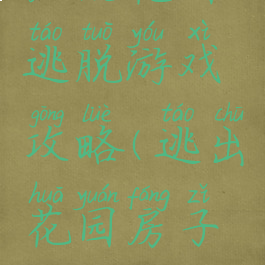 táo tuō yóu xì
逃脱游戏
gōng lüè táo chū
攻略(逃出
huā yuán fáng zǐ
花园房子